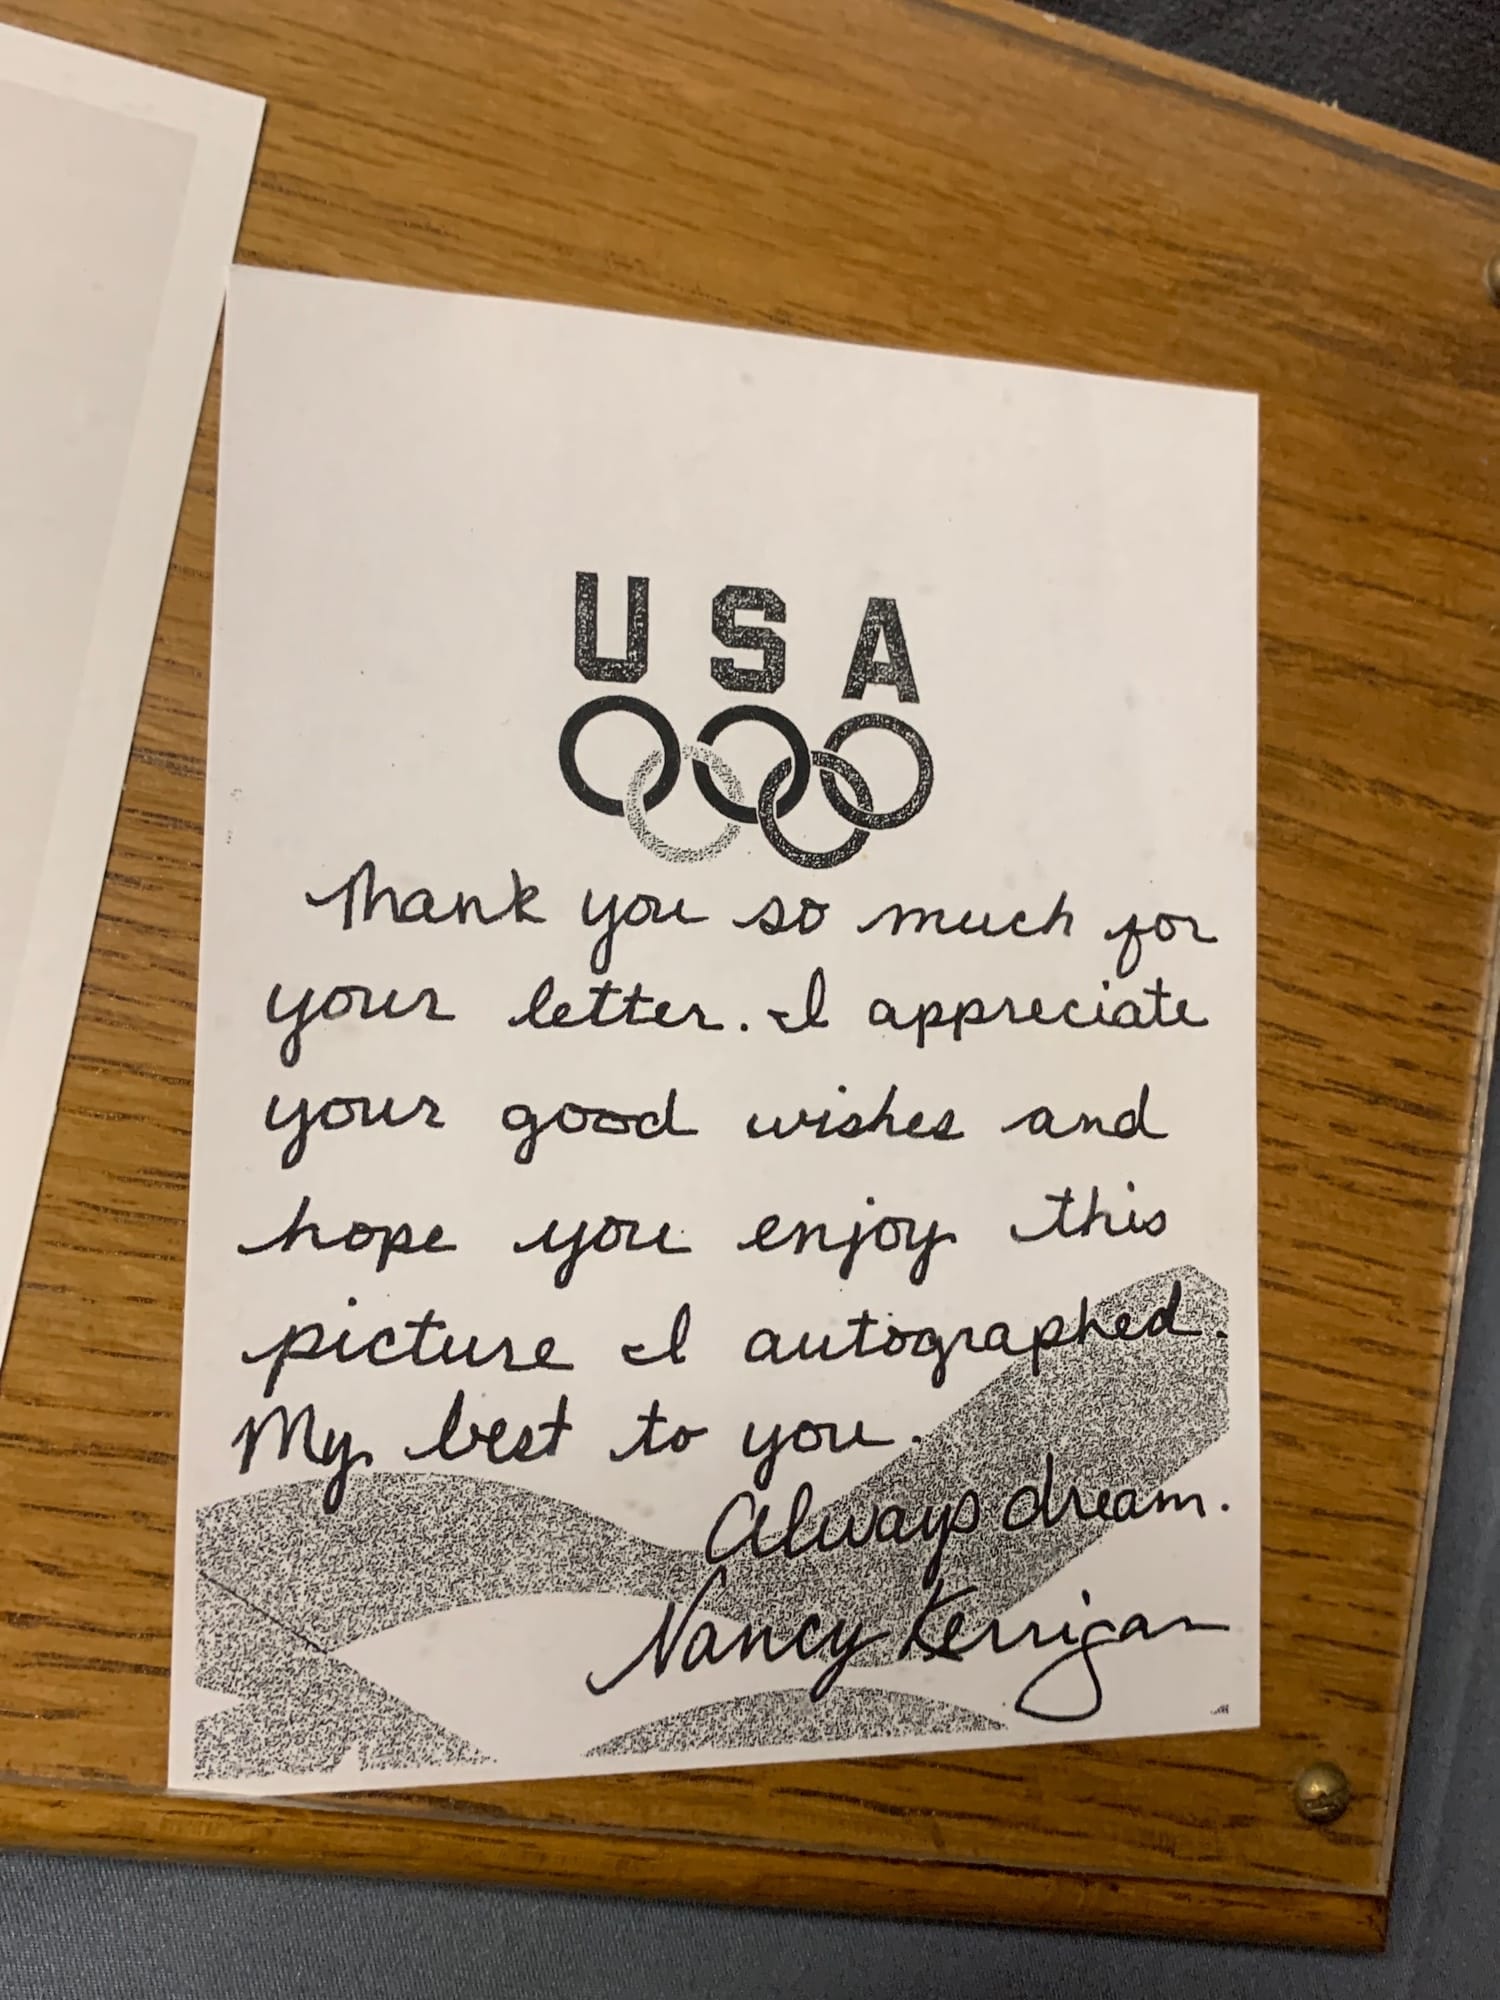 USA
Thank you so much for
your letter. I appreciate
your good wishes and
hope you enjoy this
picture I autographed.
My best to you.
Always dream.
Nancy Kerrigan